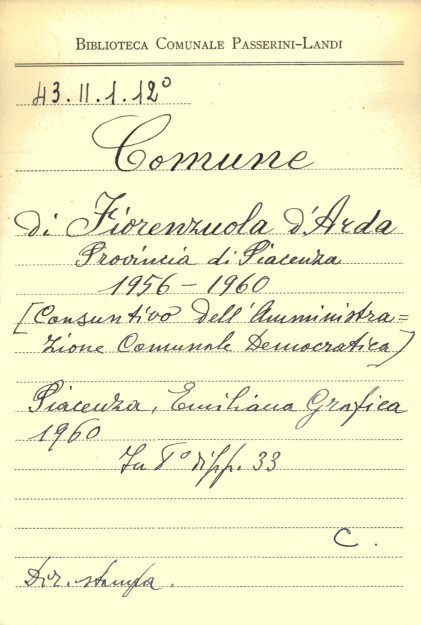 BIBLIOTECA COMUNALE PASSERINI-LANDI
43.II.1.12°
Comune
di Fiorenzuola d'Arda
Provincia di Piacenza
1956 - 1960
[Consuntivo dell'Amministra=
zione Comunale Democratica]
Piacenza, Emiliana Grafica
1960
In 8° di pp. 33
C.
Dir. stampa.